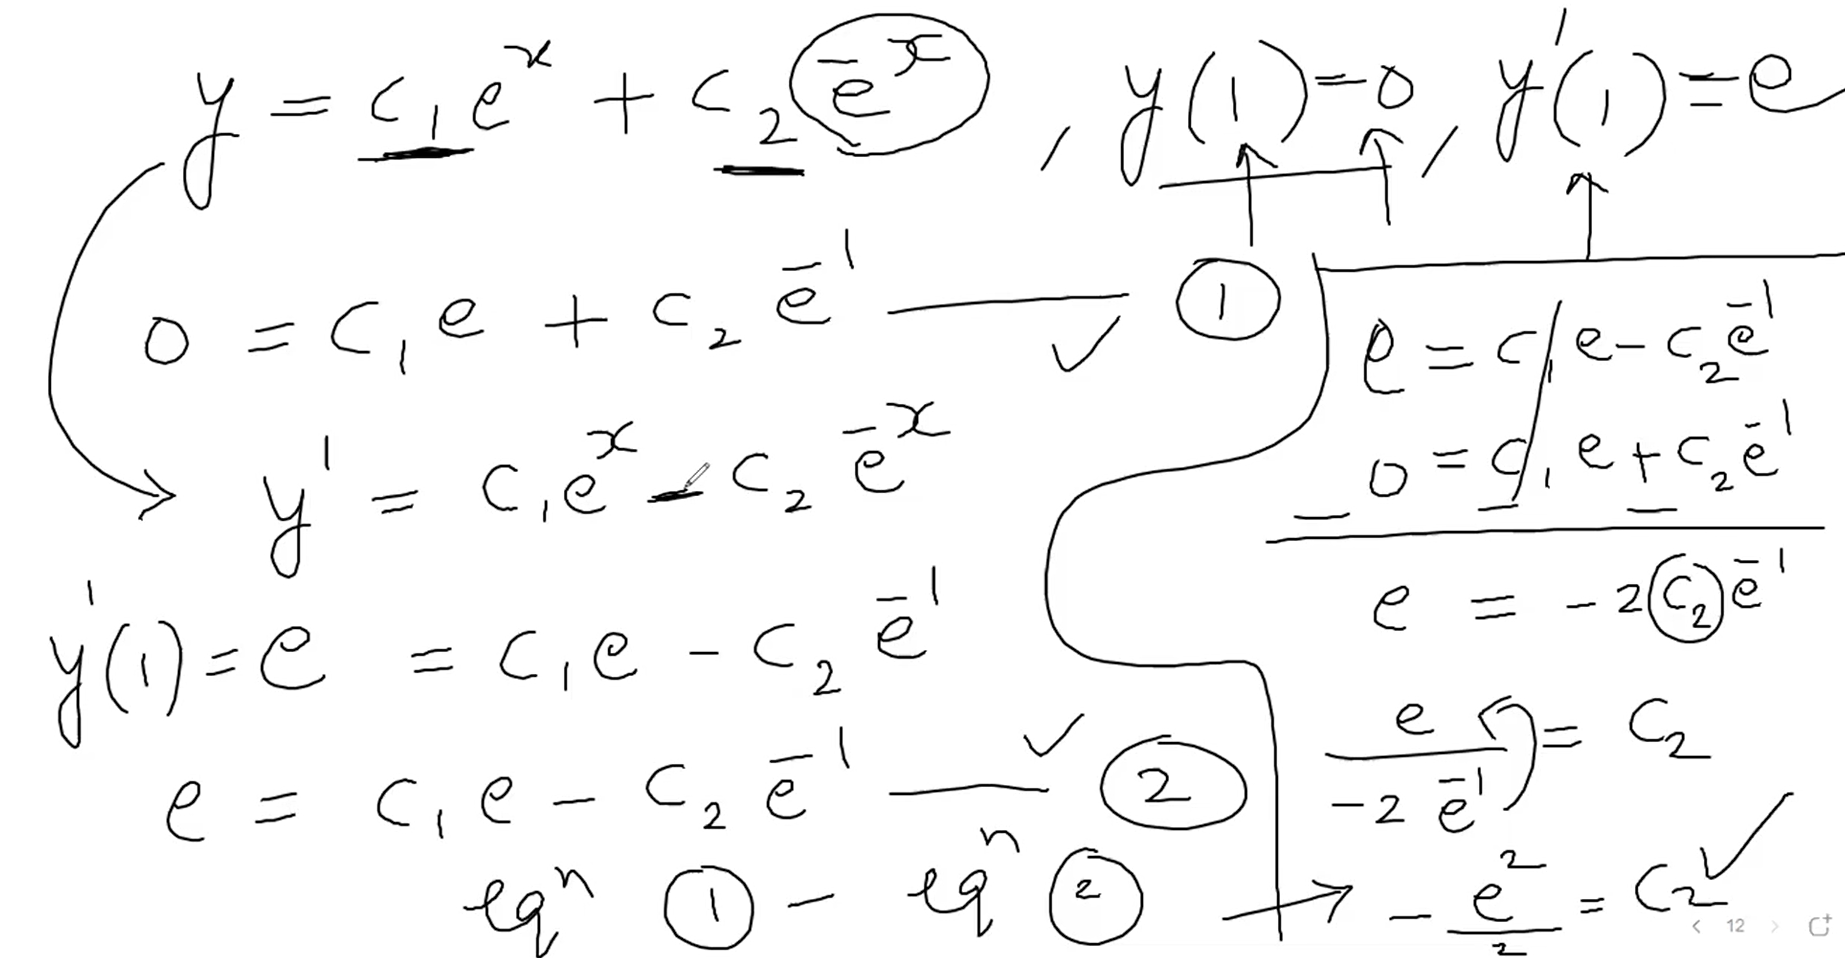 y = c₁eˣ + c₂e⁻ˣ , y(1)=0 , y'(1)=e
0 = c₁e + c₂e⁻¹ —— ①
y' = c₁eˣ - c₂e⁻ˣ
y'(1)=e = c₁e - c₂e⁻¹
e = c₁e - c₂e⁻¹ —— ②
eqⁿ ① - eqⁿ ② →
e = c₁e - c₂e⁻¹
0 = c₁e + c₂e⁻¹
— — —
e = -2c₂e⁻¹
e/-2e⁻¹ = c₂
-e²/2 = c₂
12